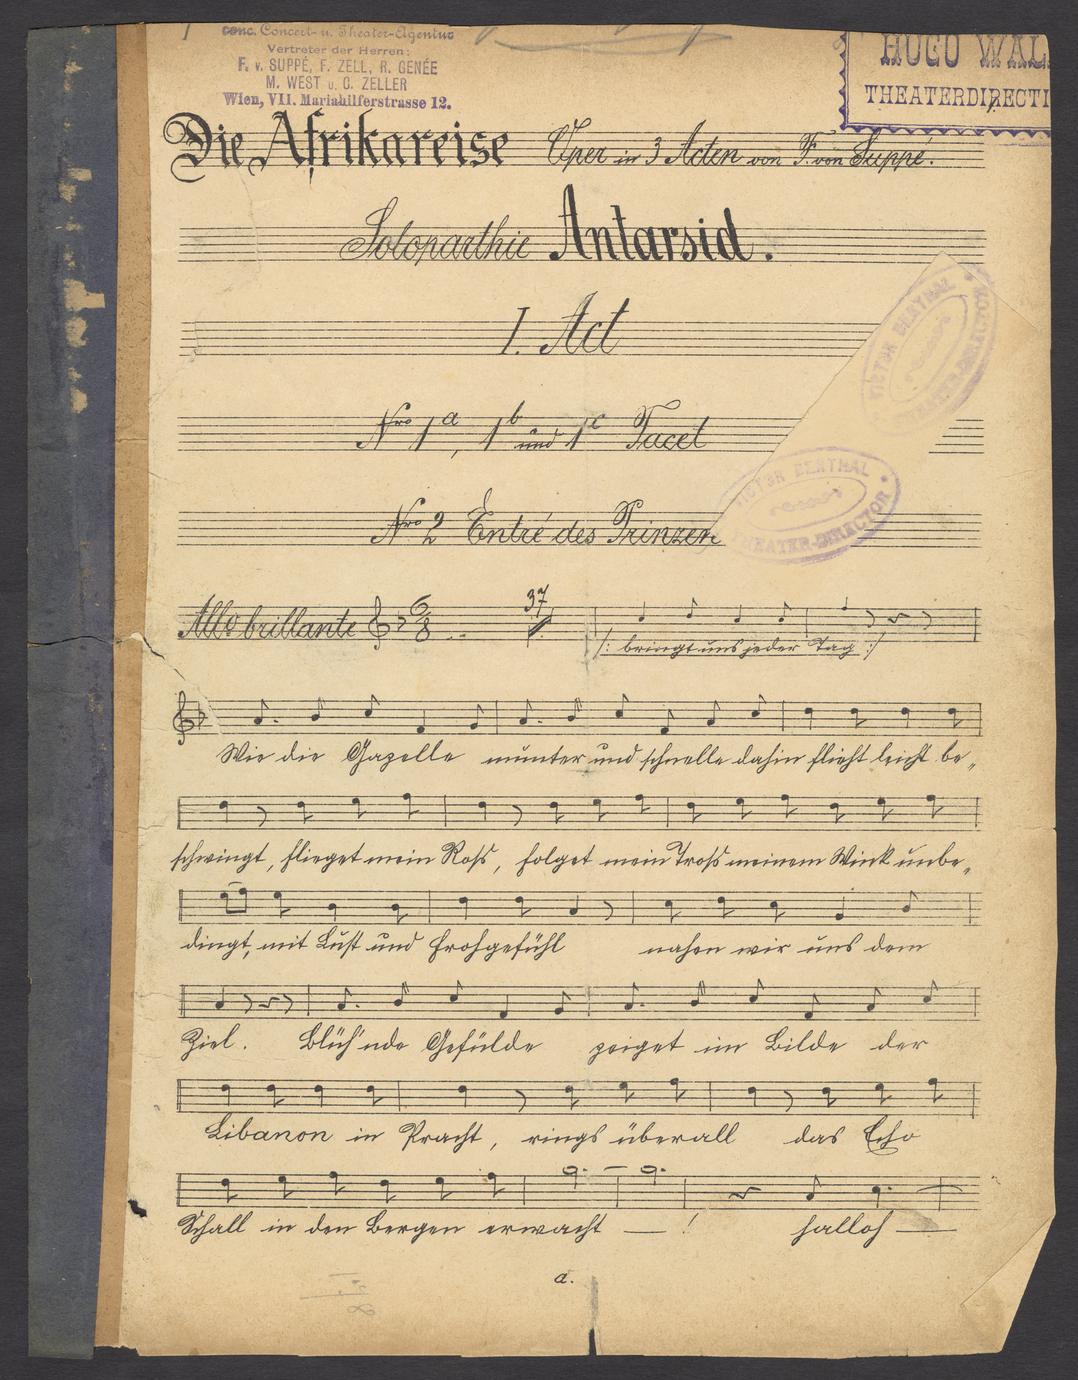 conc. Concert- u. Theater-Agentur
Vertreter der Herren:
F. v. SUPPÉ, F. ZELL, R. GENÉE
M. WEST u. C. ZELLER
Wien, VII. Mariahilferstrasse 12.
HUGO WAL
THEATERDIRECTI
Die Afrikareise Oper in 3 Acten von F. von Suppé.
Soloparthie Antarsid.
I. Act
VICTOR BERTHAL
THEATER-DIRECTOR
Nro 1a, 1b und 1c Tacet
VICTOR BERTHAL
THEATER-DIRECTOR
Nro 2 Entré des Prinzen
Allo brillante 6/8 37
/: bringt uns jeder Tag :/
Wie die Gazelle munter und schnelle dahin flieht leicht be„
schwingt, flieget mein Ross, folget mein Tross meinem Wink unbe„
dingt, mit Lust und Frohgefühl nahen wir uns dem
Ziel. Blüh'nde Gefülde zeiget im Bilde der
Libanon in Pracht, rings überall das Echo
Schall in den Bergen erwacht —! halloh —
a.